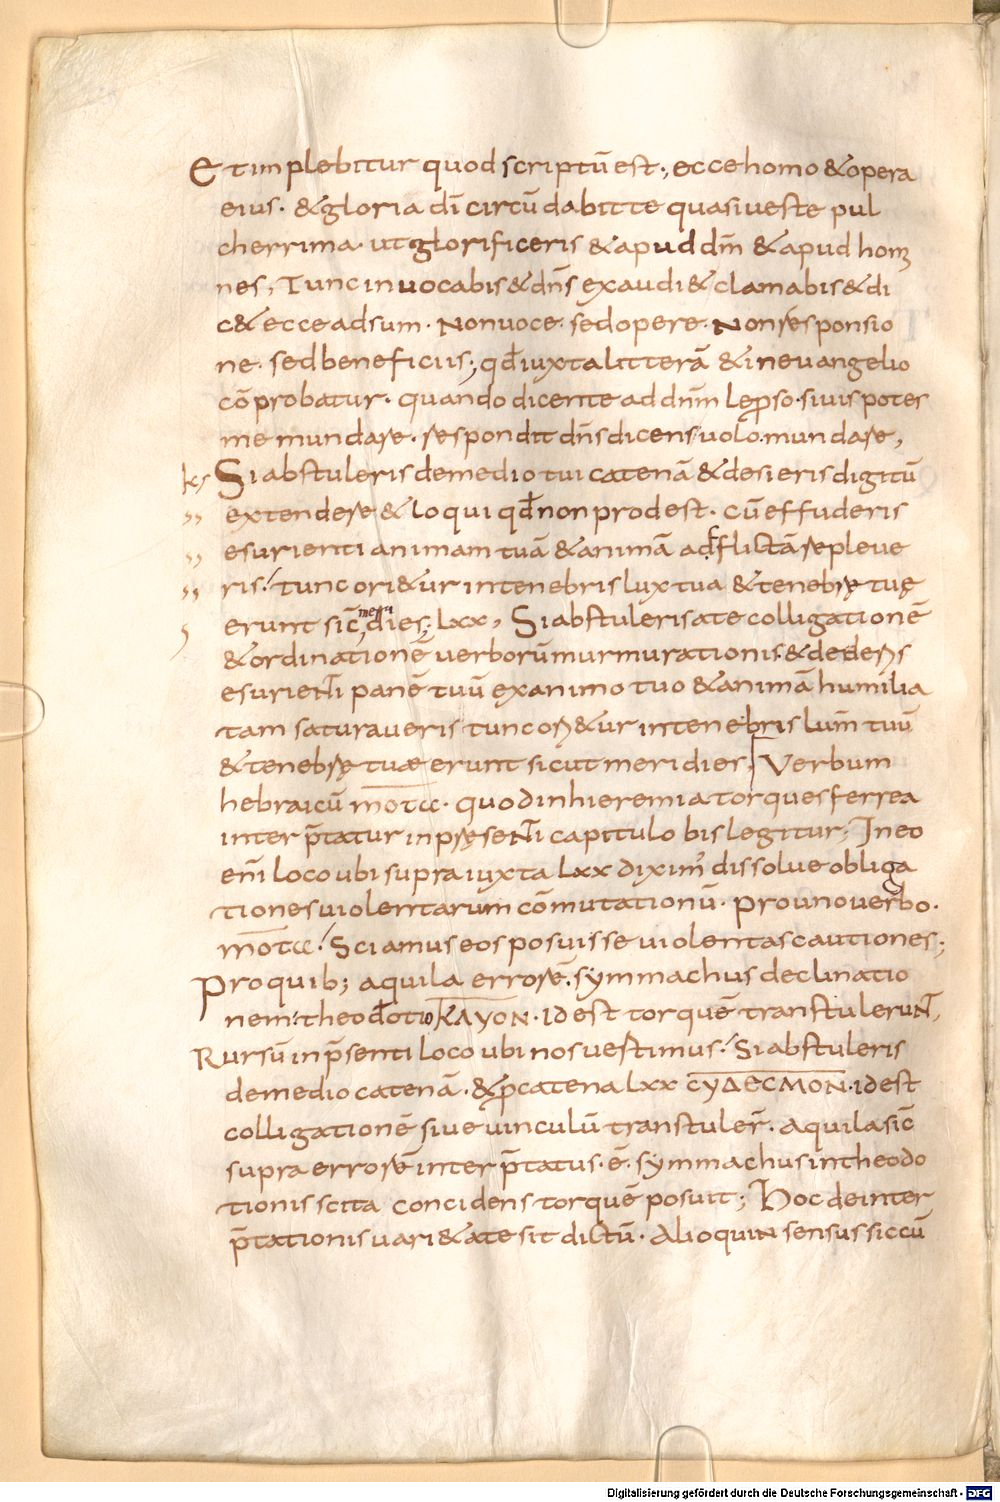 Et implebitur quod scriptū est; ecce homo & opera
eius· & gloria dī circūdabit te quasi ueste pul
cherrima· ut glorificeris & apud dm̄ & apud homi
nes, Tunc inuocabis & dn̄s exaudi& clamabis & di
c& ecce adsum· Non uoce· sed opere· Non responsio
ne· sed beneficiis; qd̄ iuxta litterā & in euangelio
cōprobatur· quando dicente ad dn̄m leproso· si uis potes
me mundare· respondit dn̄s dicens uolo· mundare,
ks Si abstuleris de medio tui catenā & desieris digitū
,, extendere & loqui qd̄ non prodest· Cū effuderis
,, esurienti animam tuā & animā adflictā repleue
,, ris! tunc ori&ur in tenebris lux tua & tenebrę tuę
, erunt sic̄ meri dies; lxx, Si abstuleris a te colligationē
& ordinationē uerborū murmurationis· & dederis
esurienti panē tuū ex animo tuo & animā humilia
tam saturaueris tunc ori&ur in tenebris lum̄ tuū
& tenebrę tuae erunt sicut meridies, Verbum
hebraicū motcc· quod in hieremia torques ferrea
inter p̄tatur in pręsenti capitulo bis legitur; In eo
eni loco ubi supra iuxta lxx dixim' dissolue obliga
tiones uiolentarum cōmutationū· pro uno uerbo·
motcc! Sciamus eos posuisse uiolentas cautiones;
Pro quib; aquila errorē· symmachus declinatio
nem: theodotio ΚΛΥΟΝ· id est torquē transtulerunt,
Rursū in p̄senti loco ubi nos uestimus! Si abstuleris
de medio catenā· & p catena lxx CYΔECMON· id est
colligationē siue uinculū transtuler̄· aquila sic̄
supra errorē inter p̄tatus· ē· symmachus in theodo
tionis scita concidens torquē posuit; Hoc de inter
p̄tationis uari&ate sit dictū· Alioquin sensus sic cū
Digitalisierung gefördert durch die Deutsche Forschungsgemeinschaft - DFG